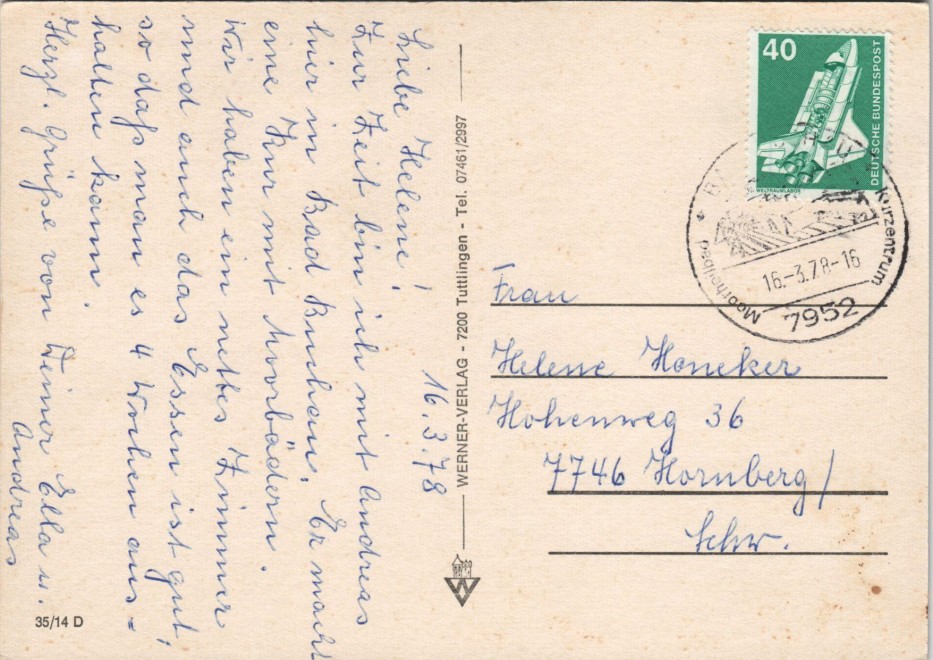 16.3.78
Liebe Helene!
Zur Zeit bin ich mit Andreas
hier in Bad Buchau. Er macht
eine Kur mit Moorbädern.
Wir haben ein nettes Zimmer
und auch das Essen ist gut,
so daß man es 4 Wochen aus-
halten kann.
Herzl. Grüße von Deiner Ella u.
Andreas
35/14 D
WERNER-VERLAG - 7200 Tuttlingen - Tel. 07461/2997
W
40
DEUTSCHE BUNDESPOST
WELTRAUMLABOR
Moorheilbad
Kurzentrum
16.-3.78-16
7952
Frau
Helene Honeker
Hohenweg 36
7746 Hornberg/
Schw.